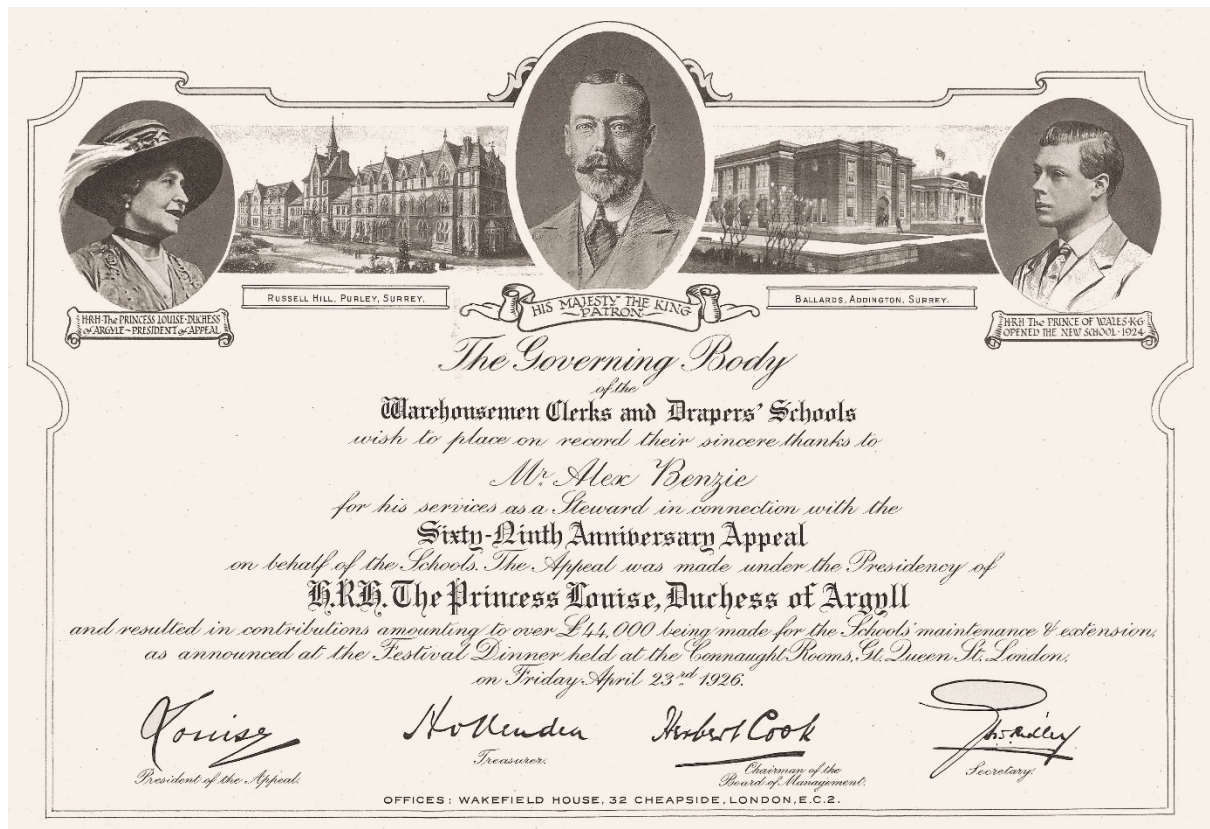 RUSSELL HILL, PURLEY, SURREY.
BALLARDS, ADDINGTON, SURREY.
HIS MAJESTY THE KING
PATRON
H·R·H· The PRINCESS LOUISE·DUCHESS
of ARGYLE – PRESIDENT of APPEAL
H·R·H The PRINCE OF WALES·K·G
OPENED THE NEW SCHOOL·1924
The Governing Body
of the
Warehousemen Clerks and Drapers' Schools
wish to place on record their sincere thanks to
Mr. Alex Benzie
for his services as a Steward in connection with the
Sixty-Ninth Anniversary Appeal
on behalf of the Schools. The Appeal was made under the Presidency of
H.R.H. The Princess Louise, Duchess of Argyll
and resulted in contributions amounting to over £44,000 being made for the Schools' maintenance & extension,
as announced at the Festival Dinner held at the Connaught Rooms, Gt. Queen St. London,
on Friday April 23rd 1926.
Louise
President of the Appeal.
Hollenden
Treasurer.
Herbert Cook
Chairman of the
Board of Management.
Ridley
Secretary.
OFFICES: WAKEFIELD HOUSE, 32 CHEAPSIDE, LONDON, E.C.2.